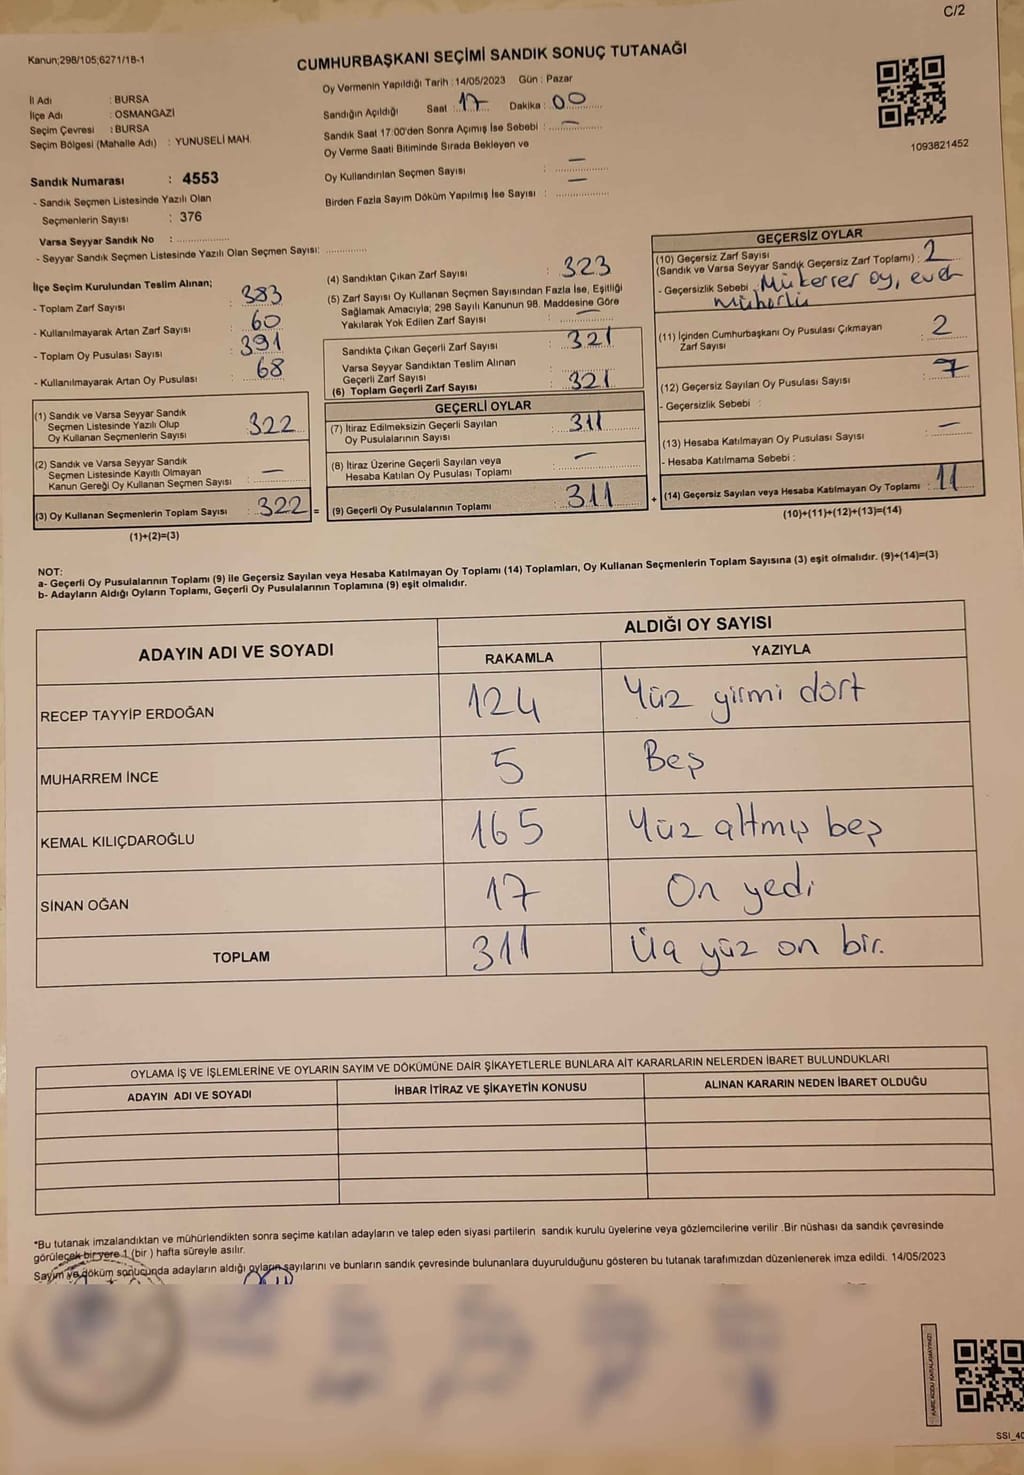 C/2
Kanun;298/105;6271/18-1
CUMHURBAŞKANI SEÇİMİ SANDIK SONUÇ TUTANAĞI
İl Adı : BURSA
İlçe Adı : OSMANGAZİ
Seçim Çevresi : BURSA
Seçim Bölgesi (Mahalle Adı) : YUNUSELİ MAH.
Sandık Numarası : 4553
- Sandık Seçmen Listesinde Yazılı Olan
Seçmenlerin Sayısı : 376
Varsa Seyyar Sandık No : ..............
- Seyyar Sandık Seçmen Listesinde Yazılı Olan Seçmen Sayısı: ............
Oy Vermenin Yapıldığı Tarih : 14/05/2023 Gün : Pazar
Sandığın Açıldığı Saat : 17 Dakika : 00
Sandık Saat 17:00'den Sonra Açımış İse Sebebi : —
Oy Verme Saati Bitiminde Sırada Bekleyen ve
Oy Kullandırılan Seçmen Sayısı : —
Birden Fazla Sayım Döküm Yapılmış İse Sayısı : —
1093821452
İlçe Seçim Kurulundan Teslim Alınan;
- Toplam Zarf Sayısı : 383
- Kullanılmayarak Artan Zarf Sayısı : 60
- Toplam Oy Pusulası Sayısı : 391
- Kullanılmayarak Artan Oy Pusulası : 68
(1) Sandık ve Varsa Seyyar Sandık
Seçmen Listesinde Yazılı Olup
Oy Kullanan Seçmenlerin Sayısı 322
(2) Sandık ve Varsa Seyyar Sandık
Seçmen Listesinde Kayıtlı Olmayan
Kanun Gereği Oy Kullanan Seçmen Sayısı : —
(3) Oy Kullanan Seçmenlerin Toplam Sayısı : 322 =
(1)+(2)=(3)
(4) Sandıktan Çıkan Zarf Sayısı : 323
(5) Zarf Sayısı Oy Kullanan Seçmen Sayısından Fazla İse, Eşitliği
Sağlamak Amacıyla; 298 Sayılı Kanunun 98. Maddesine Göre
Yakılarak Yok Edilen Zarf Sayısı : —
Sandıkta Çıkan Geçerli Zarf Sayısı : 321
Varsa Seyyar Sandıktan Teslim Alınan
Geçerli Zarf Sayısı :
(6) Toplam Geçerli Zarf Sayısı : 321
GEÇERLİ OYLAR
(7) İtiraz Edilmeksizin Geçerli Sayılan
Oy Pusulalarının Sayısı : 311
(8) İtiraz Üzerine Geçerli Sayılan veya
Hesaba Katılan Oy Pusulası Toplamı : —
(9) Geçerli Oy Pusulalarının Toplamı : 311 +
GEÇERSİZ OYLAR
(10) Geçersiz Zarf Sayısı
(Sandık ve Varsa Seyyar Sandık Geçersiz Zarf Toplamı) : 2
- Geçersizlik Sebebi : Mükerrer oy, evet
mühürlü
(11) İçinden Cumhurbaşkanı Oy Pusulası Çıkmayan
Zarf Sayısı : 2
(12) Geçersiz Sayılan Oy Pusulası Sayısı : 7
- Geçersizlik Sebebi :
(13) Hesaba Katılmayan Oy Pusulası Sayısı : —
- Hesaba Katılmama Sebebi :
(14) Geçersiz Sayılan veya Hesaba Katılmayan Oy Toplamı : 11
(10)+(11)+(12)+(13)=(14)
NOT:
a- Geçerli Oy Pusulalarının Toplamı (9) ile Geçersiz Sayılan veya Hesaba Katılmayan Oy Toplamı (14) Toplamları, Oy Kullanan Seçmenlerin Toplam Sayısına (3) eşit olmalıdır. (9)+(14)=(3)
b- Adayların Aldığı Oyların Toplamı, Geçerli Oy Pusulalarının Toplamına (9) eşit olmalıdır.
ADAYIN ADI VE SOYADI ALDIĞI OY SAYISI
RAKAMLA YAZIYLA
RECEP TAYYİP ERDOĞAN 124 Yüz yirmi dört
MUHARREM İNCE 5 Beş
KEMAL KILIÇDAROĞLU 165 Yüz altmış beş
SİNAN OĞAN 17 On yedi
TOPLAM 311 Üç yüz on bir.
OYLAMA İŞ VE İŞLEMLERİNE VE OYLARIN SAYIM VE DÖKÜMÜNE DAİR ŞİKAYETLERLE BUNLARA AİT KARARLARIN NELERDEN İBARET BULUNDUKLARI
ADAYIN ADI VE SOYADI İHBAR İTİRAZ VE ŞİKAYETİN KONUSU ALINAN KARARIN NEDEN İBARET OLDUĞU
*Bu tutanak imzalandıktan ve mühürlendikten sonra seçime katılan adayların ve talep eden siyasi partilerin sandık kurulu üyelerine veya gözlemcilerine verilir .Bir nüshası da sandık çevresinde
görülecek bir yere 1 (bir ) hafta süreyle asılır.
Sayım ve döküm sonucunda adayların aldığı oyların sayılarını ve bunların sandık çevresinde bulunanlara duyurulduğunu gösteren bu tutanak tarafımızdan düzenlenerek imza edildi. 14/05/2023
KARE KODU KARALAMAYINIZ!
SSI_40